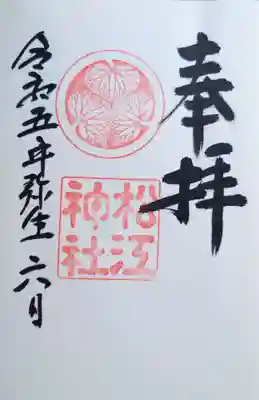 奉拝
松江
神社
令和五年弥生六日